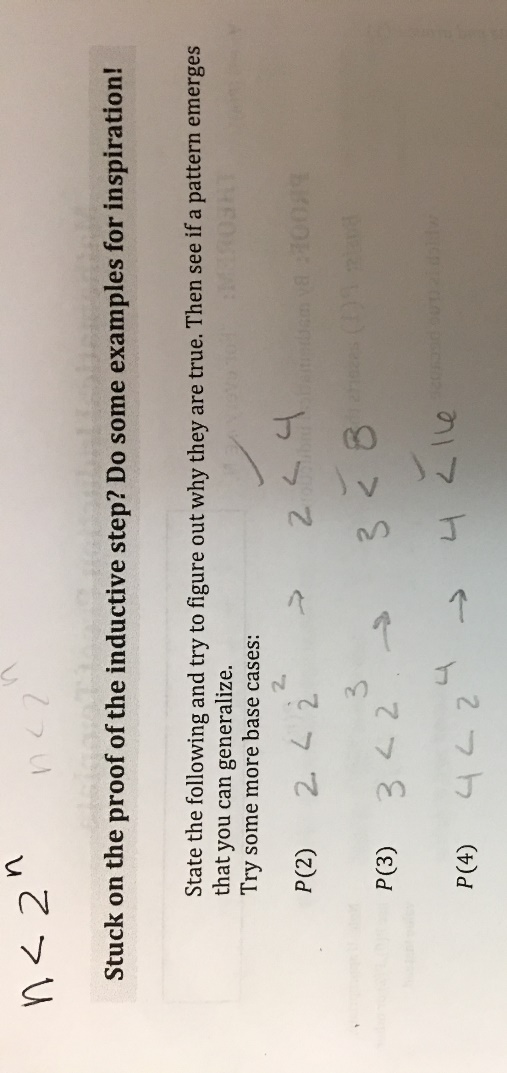 n < 2ⁿ n < 2ⁿ
Stuck on the proof of the inductive step? Do some examples for inspiration!
State the following and try to figure out why they are true. Then see if a pattern emerges
that you can generalize.
Try some more base cases:
P(2) 2 < 2² → 2 < 4 ✓
P(3) 3 < 2³ → 3 < 8 ✓
P(4) 4 < 2⁴ → 4 < 16 ✓